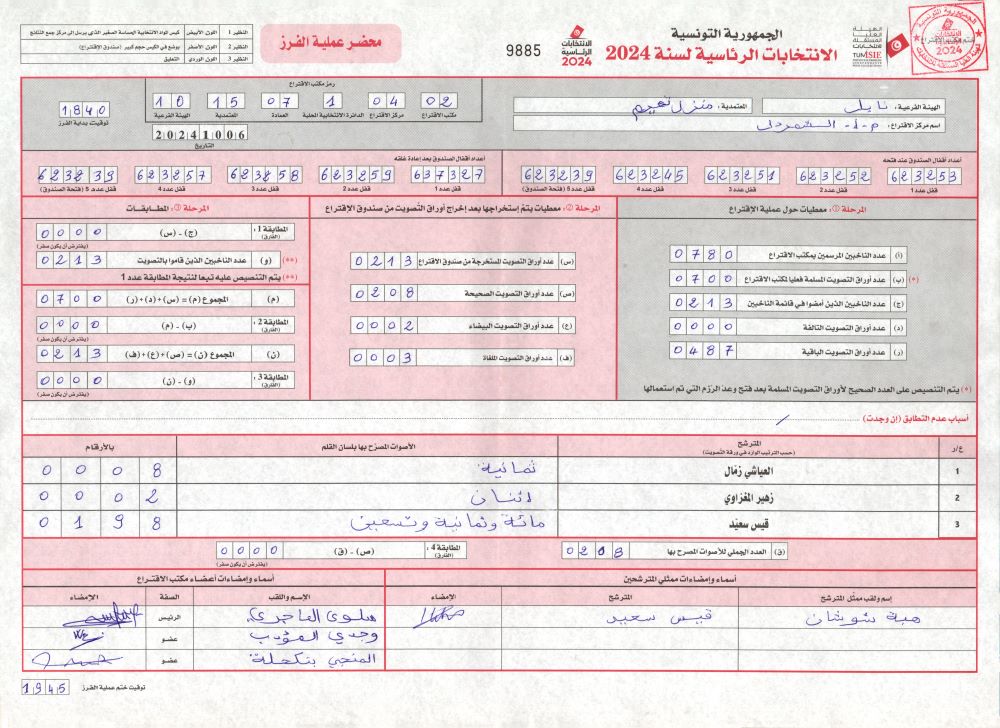 الجمهورية التونسية
الانتخابات الرئاسية لسنة 2024
الهيئة العليا المستقلة للانتخابات
TUNISIE
الانتخابات الرئاسية 2024
9885
محضر عملية الفرز
النظير 1 اللون الأبيض كيس المواد الانتخابية الحساسة الصغير الذي يرسل إلى مركز جمع النتائج
النظير 2 اللون الأصفر يوضع في الكيس حجم كبير (صندوق الاقتراع)
النظير 3 اللون الوردي التعليق
الهيئة الفرعية: نابل
المعتمدية: منزل تميم
اسم مركز الاقتراع: م-إ- الشمردلي
رمز مكتب الاقتراع
02 04 1 07 15 10
مكتب الاقتراع مركز الاقتراع الدائرة الانتخابية المحلية العمادة المعتمدية الهيئة الفرعية
20241006
التاريخ
1840
توقيت بداية الفرز
أعداد أقفال الصندوق عند فتحه
623253 623252 623251 623245 623239
قفل عدد 1 قفل عدد 2 قفل عدد 3 قفل عدد 4 قفل عدد 5 (فتحة الصندوق)
أعداد أقفال الصندوق بعد إعادة غلقه
637327 623259 623258 623257 623239
قفل عدد 1 قفل عدد 2 قفل عدد 3 قفل عدد 4 قفل عدد 5 (فتحة الصندوق)
المرحلة ①: معطيات حول عملية الاقتراع
(أ) عدد الناخبين المرسمين بمكتب الاقتراع 0780
(*) (ب) عدد أوراق التصويت المسلمة فعليا لمكتب الاقتراع 0700
(ج) عدد الناخبين الذين أمضوا في قائمة الناخبين 0213
(د) عدد أوراق التصويت التالفة 0000
(ر) عدد أوراق التصويت الباقية 0487
(*) يتم التنصيص على العدد الصحيح لأوراق التصويت المسلمة بعد فتح وعد الرزم التي تم استعمالها
المرحلة ②: معطيات يتم إستخراجها بعد إخراج أوراق التصويت من صندوق الاقتراع
(س) عدد أوراق التصويت المستخرجة من صندوق الاقتراع 0213
(ص) عدد أوراق التصويت الصحيحة 0208
(ع) عدد أوراق التصويت البيضاء 0002
(ف) عدد أوراق التصويت الملغاة 0003
المرحلة ③: المطابقات
المطابقة 1: (الفارق) (ج) - (س) 0000
(يفترض أن يكون صفر)
(**) (و) عدد الناخبين الذين قاموا بالتصويت 0213
(**) يتم التنصيص عليه تبعا لنتيجة المطابقة عدد 1
(م) المجموع (م) = (س) + (د) + (ر) 0700
المطابقة 2: (الفارق) (ب) - (م) 0000
(يفترض أن يكون صفر)
(ن) المجموع (ن) = (ص) + (ع) + (ف) 0213
المطابقة 3: (الفارق) (و) - (ن) 0000
(يفترض أن يكون صفر)
أسباب عدم التطابق (إن وجدت) /
ع/ر المترشح الأصوات المصرّح بها بلسان القلم بالأرقام
(حسب الترتيب الوارد في ورقة التصويت)
1 العياشي زمّال ثمانية 0008
2 زهير المغزاوي اثنان 0002
3 قيس سعيّد مائة وثمانية وتسعين 0198
(ق) العدد الجملي للأصوات المصرح بها 0208
المطابقة 4: (الفارق) (ص) - (ق) 0000
(يفترض أن يكون صفر)
أسماء وإمضاءات ممثلي المترشحين
إسم ولقب ممثل المترشح المترشح الإمضاء
هبة شوشان قيس سعيد
أسماء وإمضاءات أعضاء مكتب الاقتراع
الإسم واللقب الصفة الإمضاء
سلوى الماجري الرئيس
وجدي المؤدب عضو
المنجي بنكحلة عضو
توقيت ختم عملية الفرز 1945